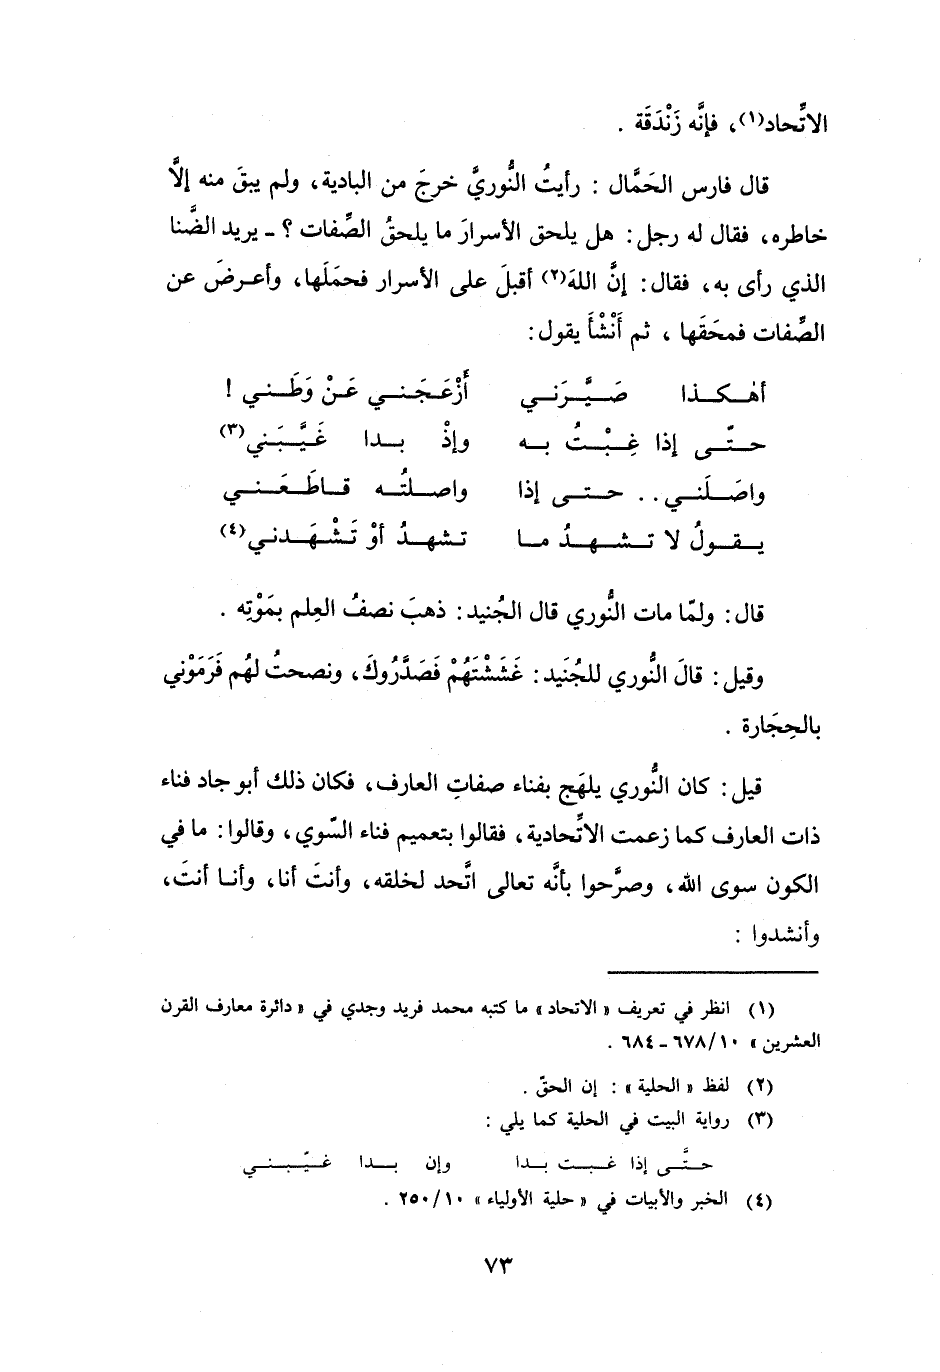 الاتِّحاد(١)، فإنَّه زَنْدَقَة .
قال فارس الحَمَّال : رأيتُ النُّوريَّ خرجَ من البادية، ولم يبقَ منه إلَّا
خاطره، فقال له رجل: هل يلحق الأسرارَ ما يلحقُ الصِّفات ؟ ـ يريد الضَّنا
الذي رأى به، فقال: إنَّ اللهَ(٢) أقبلَ على الأسرار فحمَلَها، وأعرضَ عن
الصِّفات فمحَقَها ، ثم أَنْشَأَ يقول:
أهٰكذا صَيَّرَني أَزْعَجَني عَنْ وَطَني !
حتّى إذا غِبْتُ به وإذْ بدا غَيَّبَني(٣)
واصَلَني.. حتى إذا واصلتُه قاطَعَني
يقولُ لا تشهدُ ما تشهدُ أوْ تَشْهَدني(٤)
قال: ولمّا مات النُّوري قال الجُنيد: ذهبَ نصفُ العِلم بمَوْتِه .
وقيل: قالَ النُّوري للجُنَيد: غَشَشْتَهُمْ فَصَدَّرُوكَ، ونصحتُ لهُم فَرَمَوْني
بالحِجَارة .
قيل: كان النُّوري يلهَج بفناء صفاتِ العارف، فكان ذلك أبو جاد فناء
ذات العارف كما زعمت الاتِّحادية، فقالوا بتعميم فناء السّوي، وقالوا: ما في
الكون سوى الله، وصرَّحوا بأنَّه تعالى اتَّحد لخلقه، وأنتَ أنا، وأنا أنتَ،
وأنشدوا :
(١) انظر في تعريف «الاتحاد» ما كتبه محمد فريد وجدي في «دائرة معارف القرن
العشرين» ١٠/٦٧٨ ـ ٦٨٤ .
(٢) لفظ «الحلية» : إن الحقّ .
(٣) رواية البيت في الحلية كما يلي :
حتَّى إذا غبت بدا وإن بدا غيّبني
(٤) الخبر والأبيات في «حلية الأولياء» ١٠/٢٥٠ .
٧٣